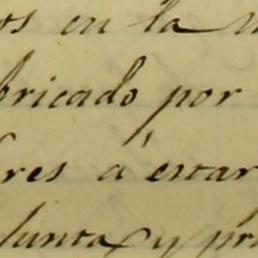 os en la
bricado por
res a estar
Junta y pr